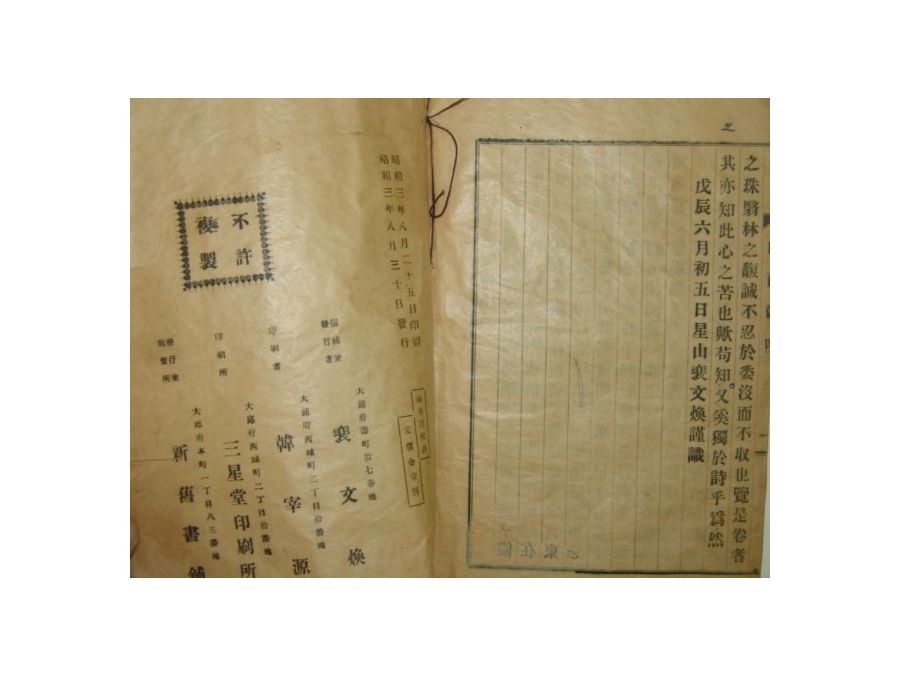 之珠翳林之馥誠不忍於委沒而不取也覽是卷者
其亦知此心之苦也歟苟知又奚獨於詩乎爲然
戊辰六月初五日星山裵文煥謹識
昭和三年八月二十五日印刷
昭和三年八月三十日發行
定價金壹圓
編輯兼
發行者
大邱府壽町拾七番地
裵文煥
印刷者
大邱府西城町二丁目拾番地
韓宰源
印刷所
大邱府西城町二丁目拾番地
三星堂印刷所
發行兼
發賣所
大邱府本町一丁目八三番地
新舊書鋪
不許
複製